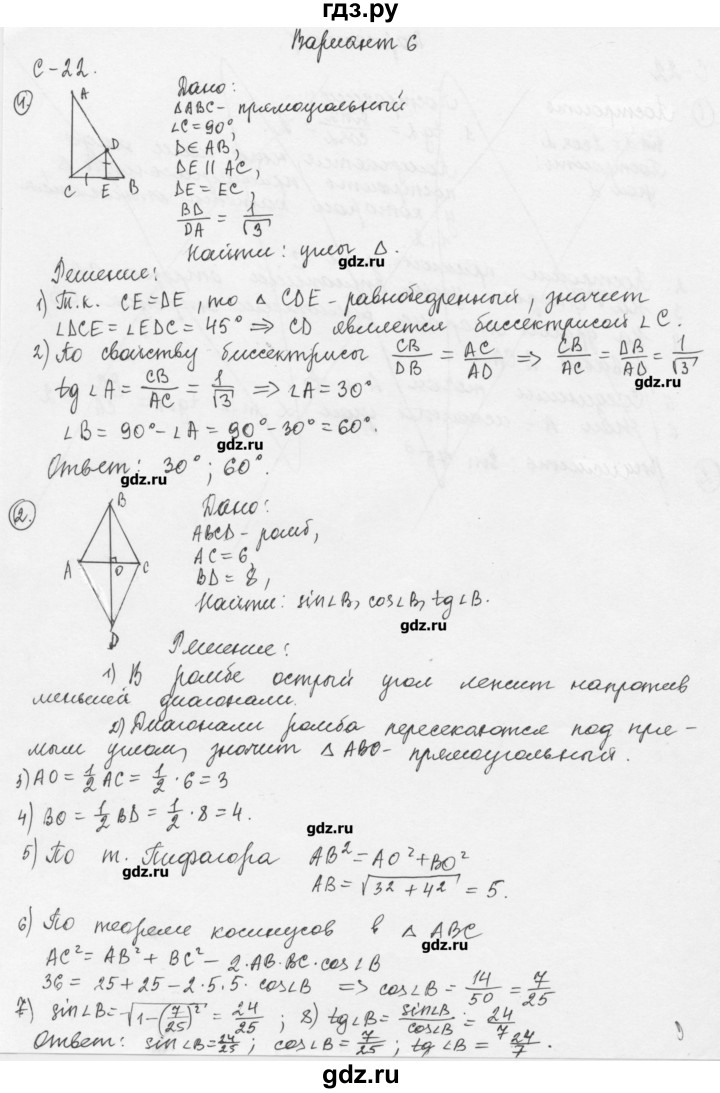 гдз.ру
Вариант 6
С-22.
1.
A
D
C E B
Дано:
△ABC - прямоугольный
∠C=90°,
D∈AB,
DE ∥ AC,
DE = EC,
BD/DA = 1/√3
Найти: углы △.
gdz.ru
Решение:
1) Т.к. CE=DE, то △ CDE - равнобедренный, значит
∠DCE = ∠EDC = 45° ⇒ CD является биссектрисой ∠C.
2) По свойству биссектрисы CB/DB = AC/AD ⇒ CB/AC = DB/AD = 1/√3
gdz.ru
tg∠A = CB/AC = 1/√3 ⇒ ∠A = 30°
∠B = 90° - ∠A = 90° - 30° = 60°.
gdz.ru
Ответ: 30°; 60°.
gdz.ru
2.
B
A O C
D
Дано:
ABCD - ромб,
AC = 6,
BD = 8,
Найти: sin∠B, cos∠B, tg∠B.
gdz.ru
Решение:
1) В ромбе острый угол лежит напротив
меньшей диагонали.
2) Диагонали ромба пересекаются под пря-
мым углом, значит △ ABO - прямоугольный.
3) AO = 1/2 AC = 1/2 · 6 = 3
4) BO = 1/2 BD = 1/2 · 8 = 4.
gdz.ru
5) По т. Пифагора AB² = AO² + BO²
gdz.ru
AB = √3² + 4² = 5.
6) По теореме косинусов в △ ABC
gdz.ru
AC² = AB² + BC² - 2·AB·BC·cos∠B
36 = 25 + 25 - 2·5·5·cos∠B ⇒ cos∠B = 14/50 = 7/25
7) sin∠B = √1-(7/25)² = 24/25; 8) tg∠B = sin∠B/cos∠B = 24/7
Ответ: sin∠B = 24/25; cos∠B = 7/25; tg∠B = 24/7.
gdz.ru
gdz.ru